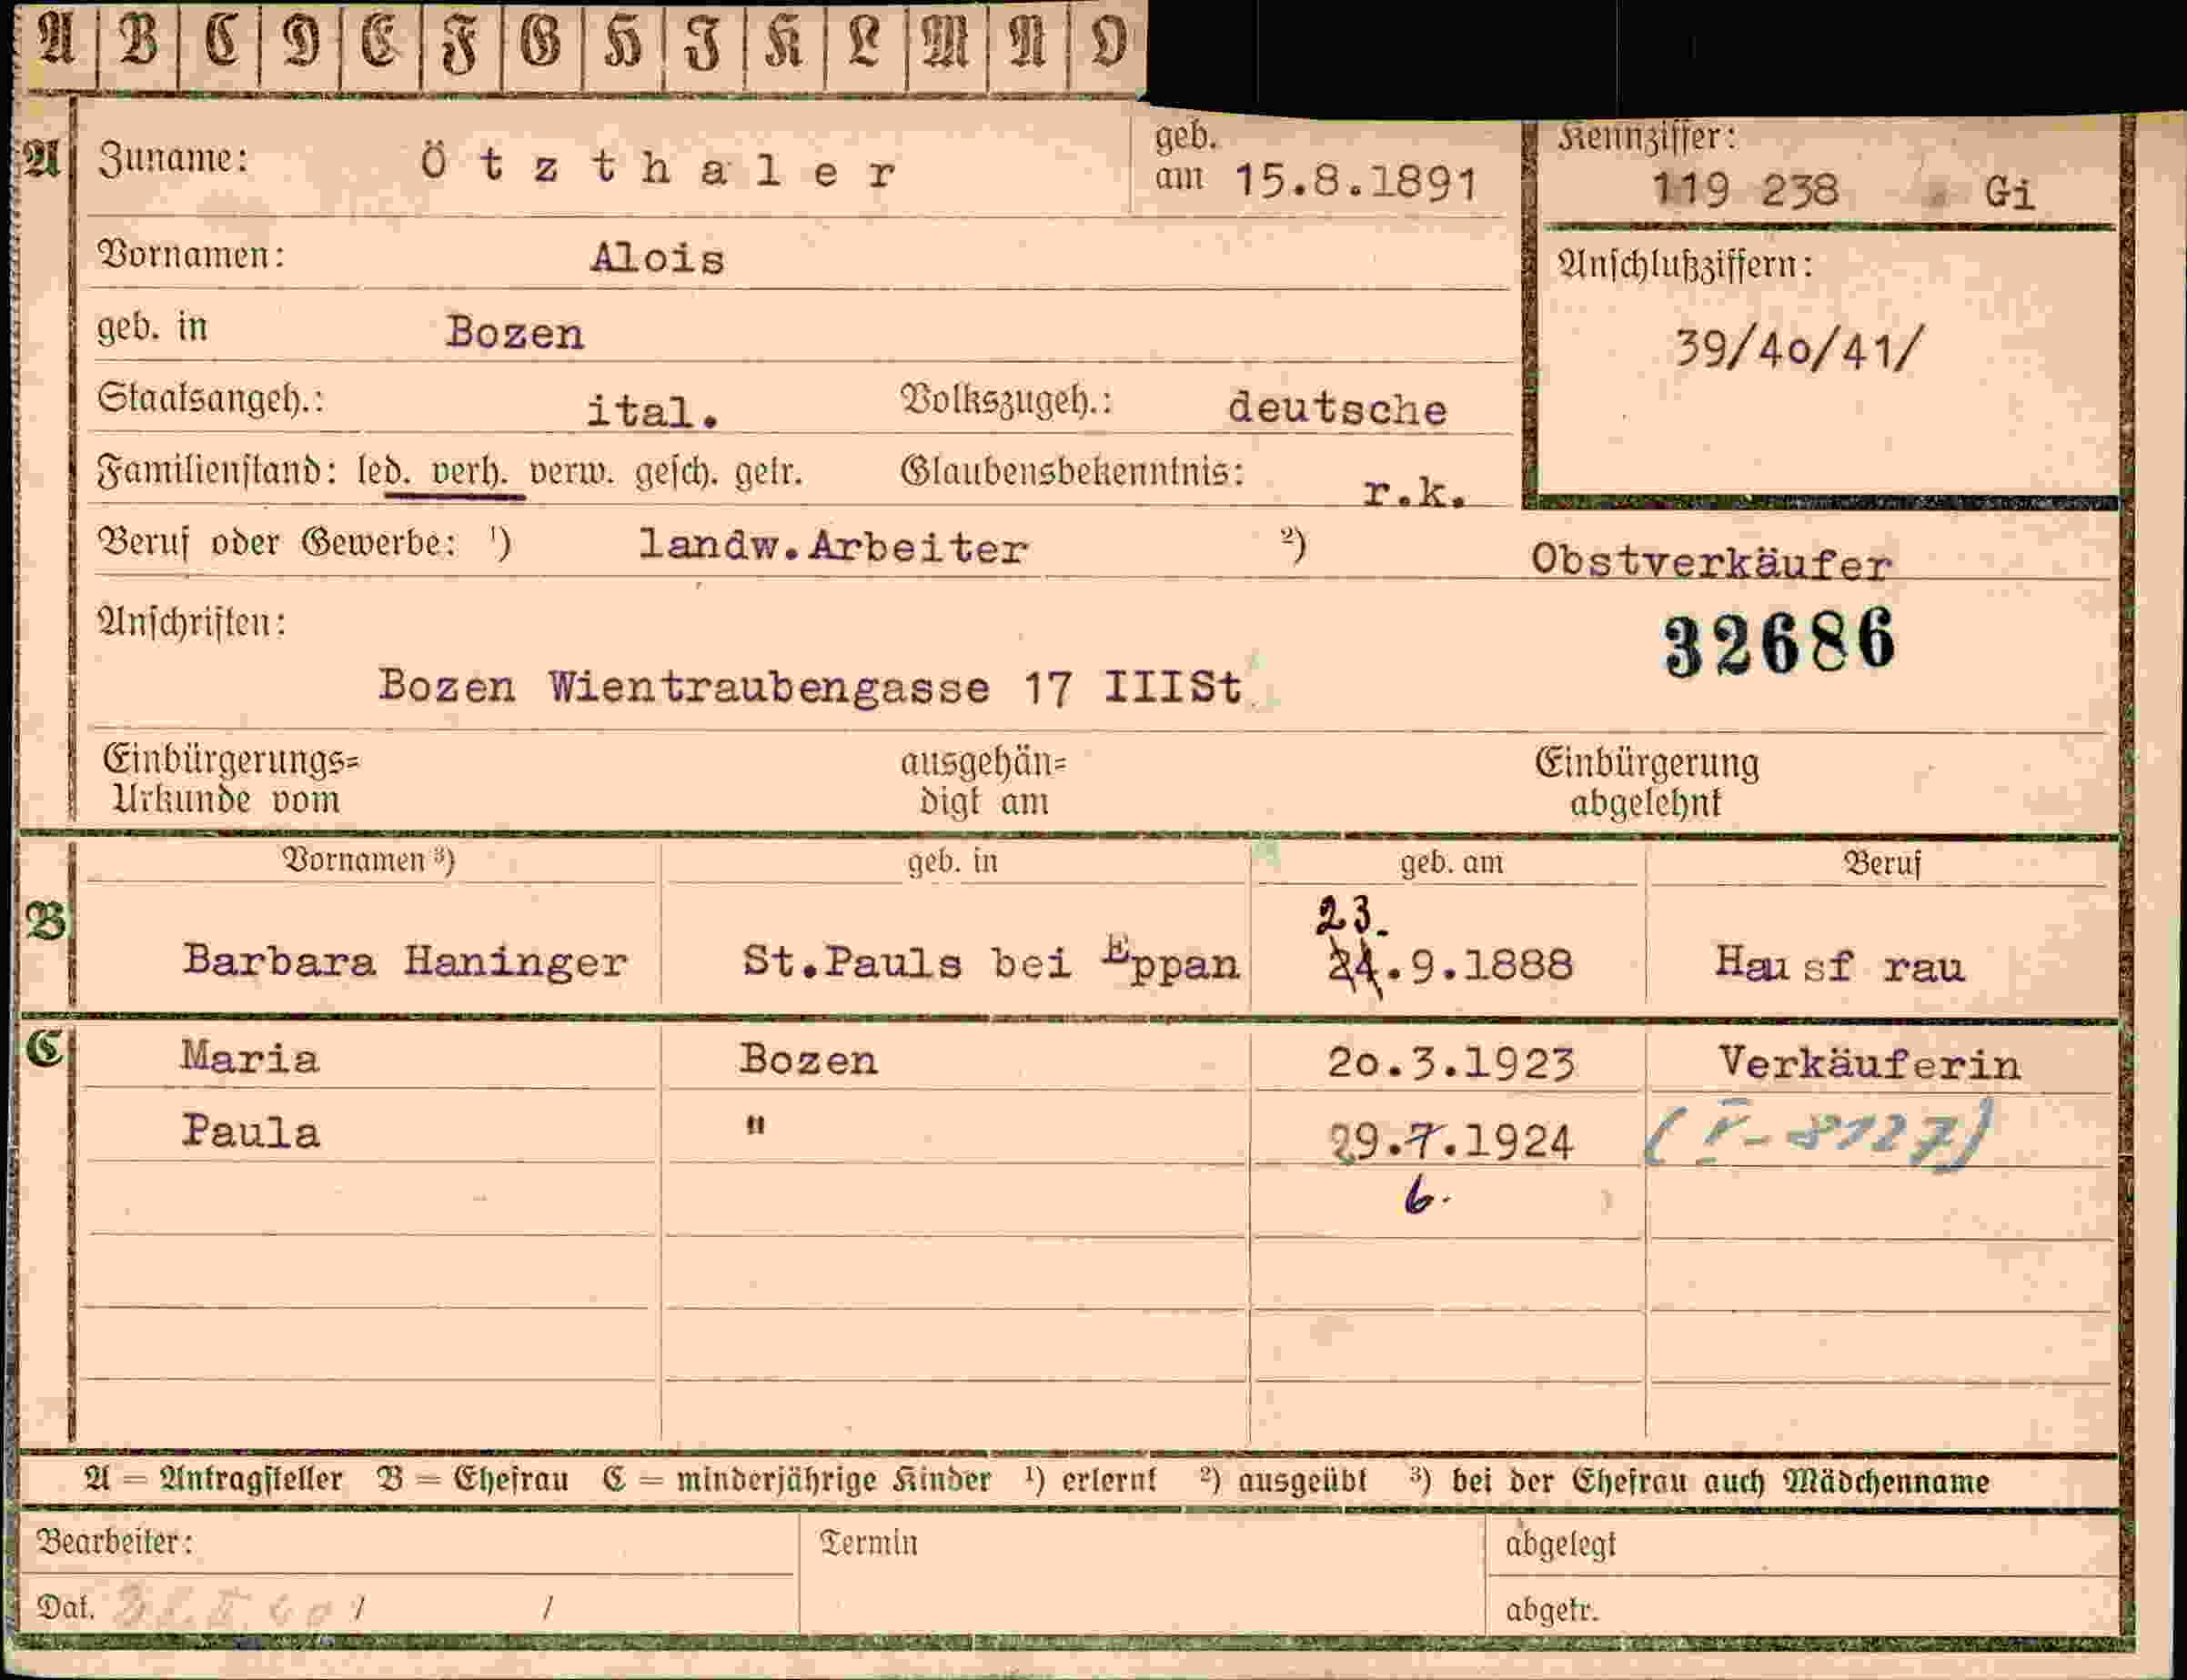 A B C D E F G H I K L M N O
A Zuname: Ötzthaler geb. am 15.8.1891 Kennziffer: 119 238 Gi
Vornamen: Alois Anschlußziffern:
geb. in Bozen 39/40/41/
Staatsangeh.: ital. Volkszugeh.: deutsche
Familienstand: led. verh. verw. gesch. getr. Glaubensbekenntnis: r.k.
Beruf oder Gewerbe: 1) landw.Arbeiter 2) Obstverkäufer
Anschriften: 32686
Bozen Wientraubengasse 17 IIISt
Einbürgerungs= ausgehän= Einbürgerung
Urkunde vom digt am abgelehnt
Vornamen 3) geb. in geb. am Beruf
23.
B Barbara Haninger St.Pauls bei Eppan 24.9.1888 Hausfrau
C Maria Bozen 20.3.1923 Verkäuferin
Paula " 29.7.1924 (V-8127)
6.
A = Antragsteller B = Ehefrau C = minderjährige Kinder 1) erlernt 2) ausgeübt 3) bei der Ehefrau auch Mädchenname
Bearbeiter: Termin abgelegt
Dat. / / abgetr.